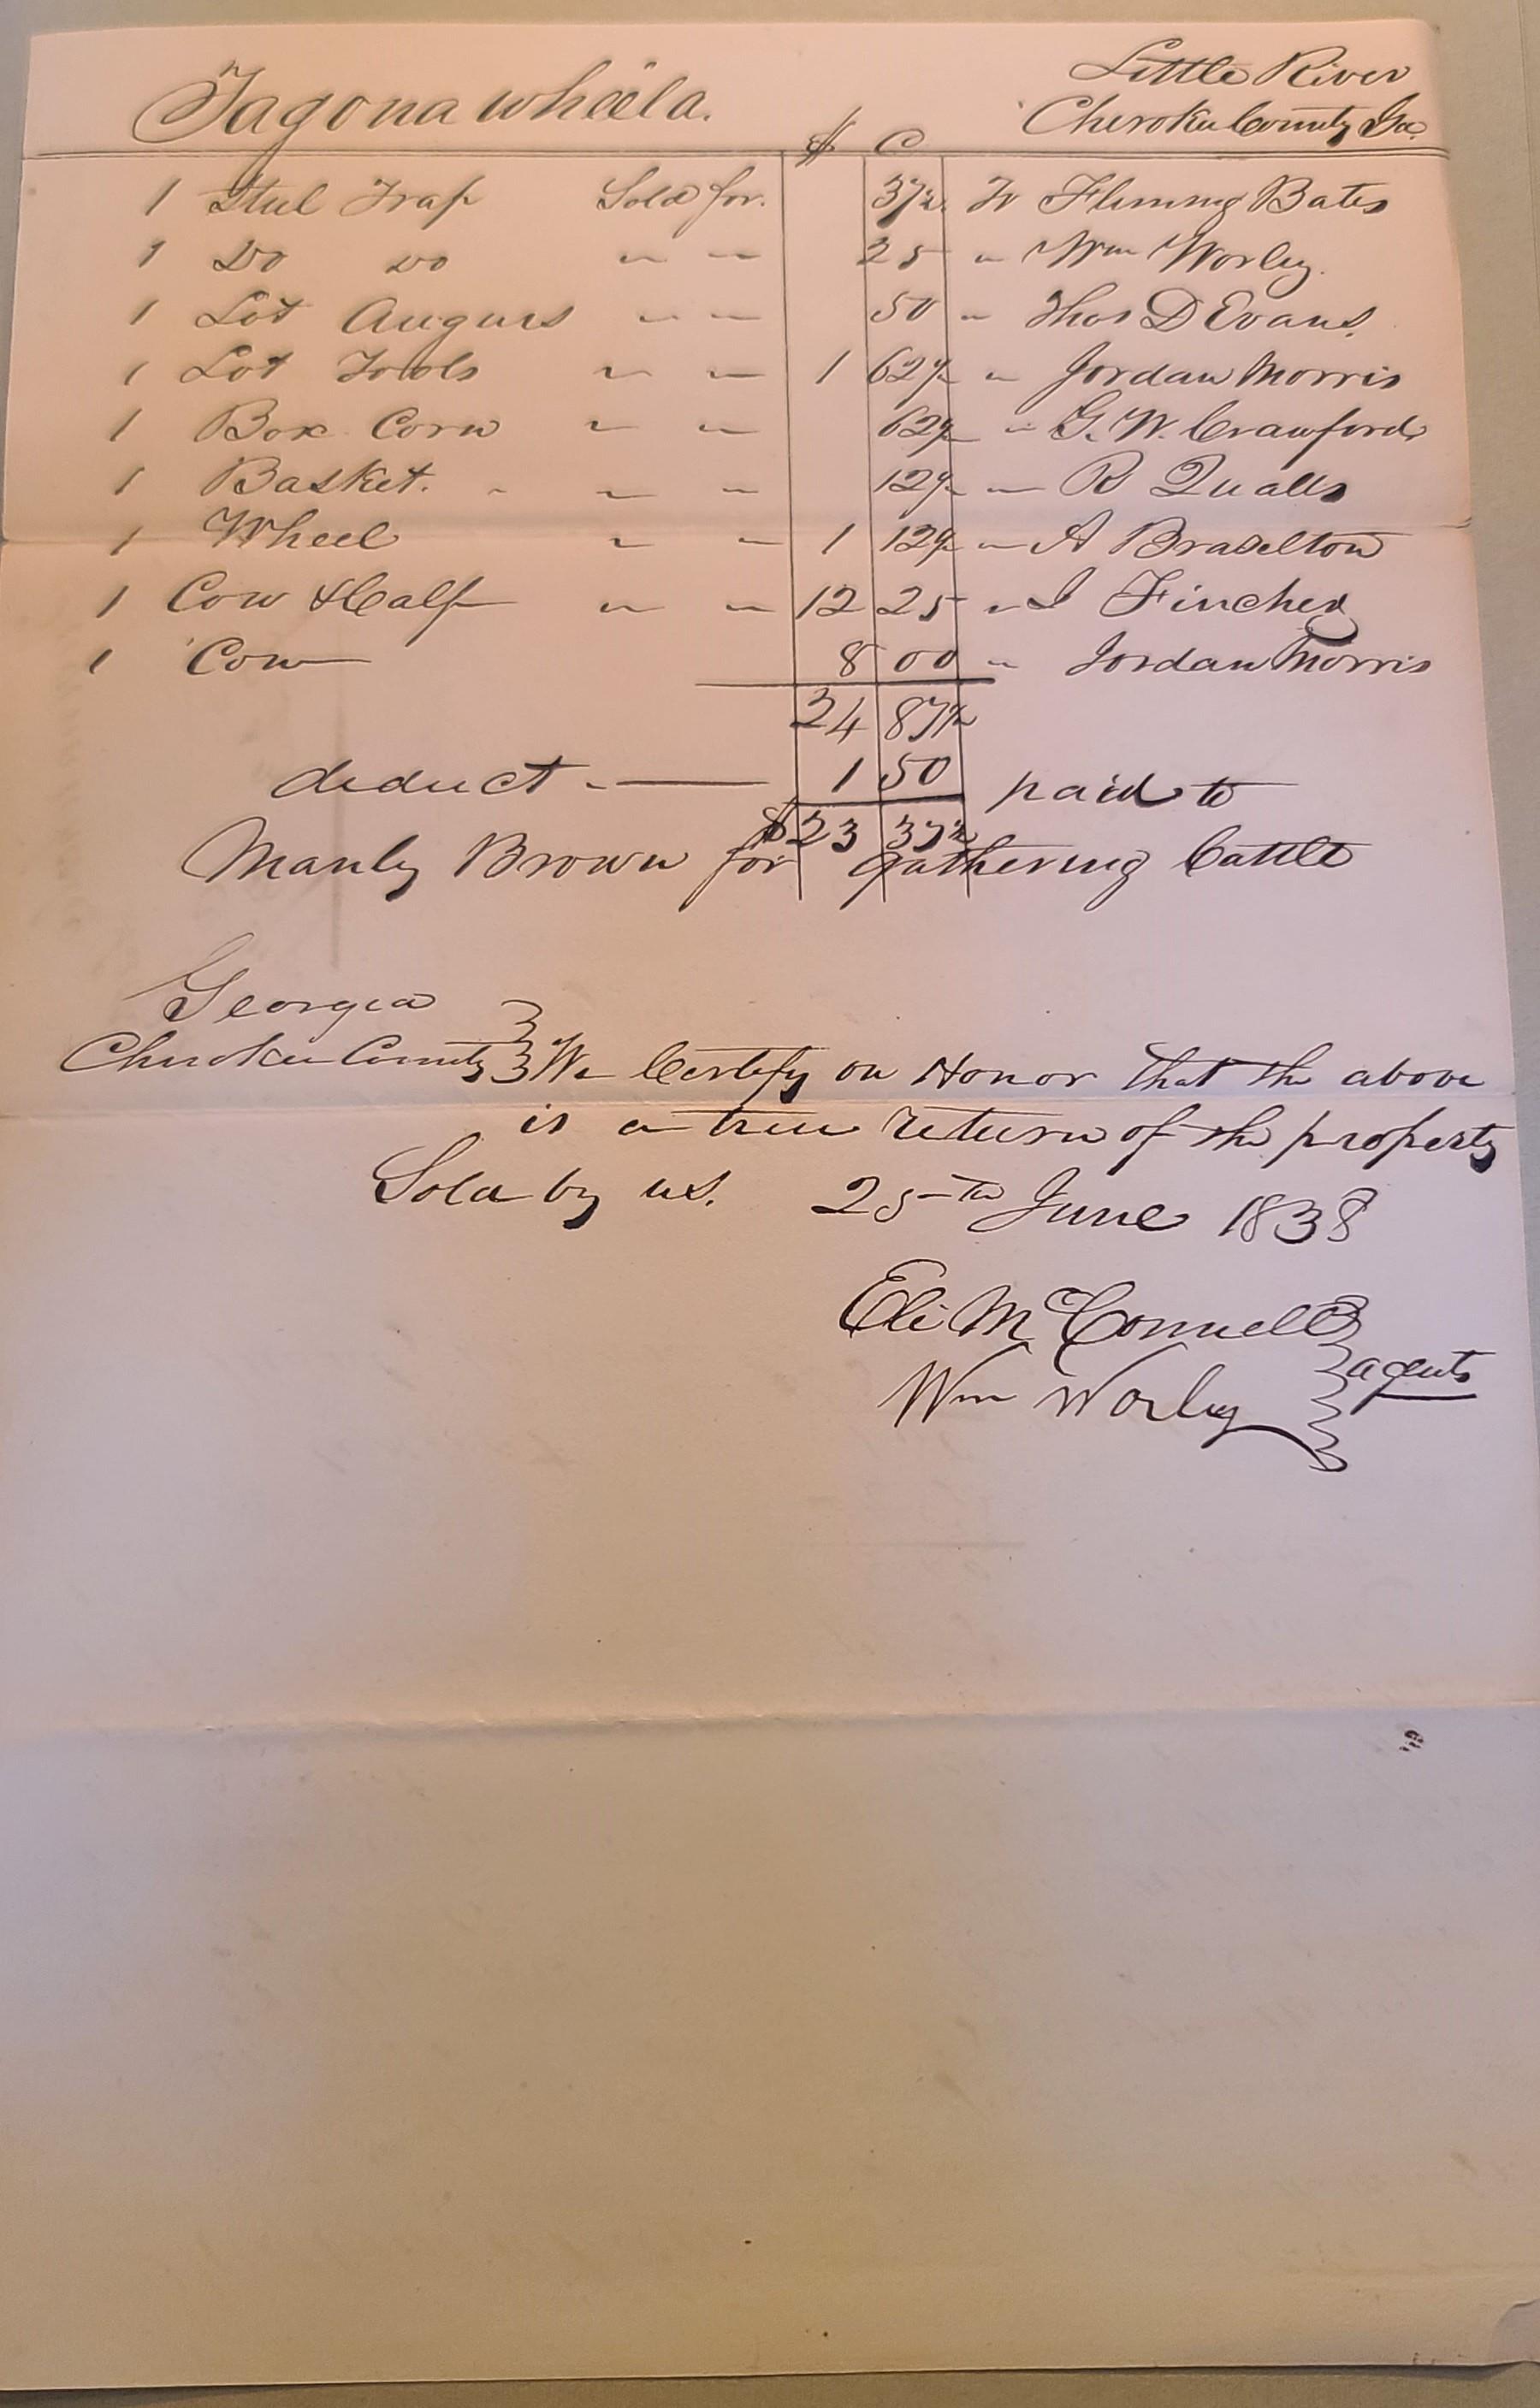 Tagonawheela.
Little River
Cherokee County Ga.
$ C
1 Steel Trap Sold for. 37½ To Fleming Bates
1 Do Do " " 25 " Wm Worley.
1 Lot Augurs " " 50 " Thos D Evans.
1 Lot Tools " " 1 62½ " Jordan Morris
1 Box Corn " " 62½ " G. W. Crawford
1 Basket. " " " 12½ " R Qualls
1 Wheel " " 1 12½ " A Braselton
1 Cow & Calf " " 12 25 " I Fincher
1 Cow 8 00 " Jordan Morris
24 87½
deduct - 1 50 paid to
$23 37½
Manly Brown for gathering Cattle
Georgia
Cherokee County We Certify on Honor that the above
is a true return of the property
Sold by us. 25th June 1838
Eli McConnell
agents
Wm Worley